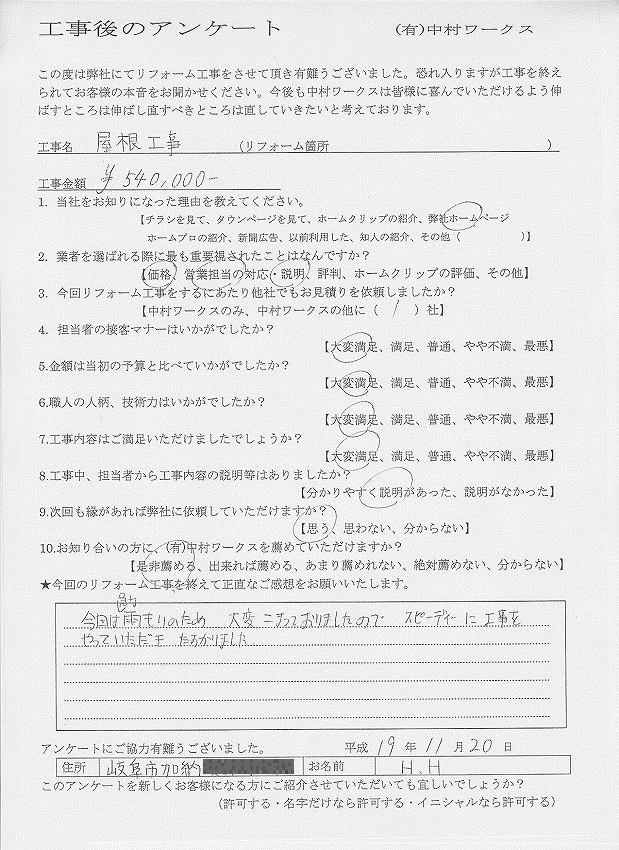 工事後のアンケート　(有)中村ワークス
この度は弊社にてリフォーム工事をさせて頂き有難うございました。恐れ入りますが工事を終え
られてお客様の本音をお聞かせください。今後も中村ワークスは皆様に喜んでいただけるよう伸
ばすところは伸ばし直すべきところは直していきたいと考えております。
工事名　屋根工事　(リフォーム箇所　)
工事金額　¥540,000-
1. 当社をお知りになった理由を教えてください。
【チラシを見て、タウンページを見て、ホームクリップの紹介、弊社ホームページ
ホームプロの紹介、新聞広告、以前利用した、知人の紹介、その他（　）】
2. 業者を選ばれる際に最も重要視されたことはなんですか？
【価格、営業担当の対応・説明、評判、ホームクリップの評価、その他】
3. 今回リフォーム工事をするにあたり他社でもお見積りを依頼しましたか？
【中村ワークスのみ、中村ワークスの他に（ 1 ）社】
4. 担当者の接客マナーはいかがでしたか？
【大変満足、満足、普通、やや不満、最悪】
5.金額は当初の予算と比べていかがでしたか？
【大変満足、満足、普通、やや不満、最悪】
6.職人の人柄、技術力はいかがでしたか？
【大変満足、満足、普通、やや不満、最悪】
7.工事内容はご満足いただけましたでしょうか？
【大変満足、満足、普通、やや不満、最悪】
8.工事中、担当者から工事内容の説明等はありましたか？
【分かりやすく説明があった、説明がなかった】
9.次回も縁があれば弊社に依頼していただけますか？
【思う、思わない、分からない】
10.お知り合いの方に、(有)中村ワークスを薦めていただけますか？
【是非薦める、出来れば薦める、あまり薦めれない、絶対薦めない、分からない】
★今回のリフォーム工事を終えて正直なご感想をお願いいたします。
今回は雨もりのため　大変こまっておりましたので　スピーディーに工事を
やっていただき　たすかりました。
アンケートにご協力有難うございました。　平成 19 年 11 月 20 日
住所　岐阜市加納　お名前　H.H
このアンケートを新しくお客様になる方にご紹介させていただいても宜しいでしょうか？
（許可する・名字だけなら許可する・イニシャルなら許可する）